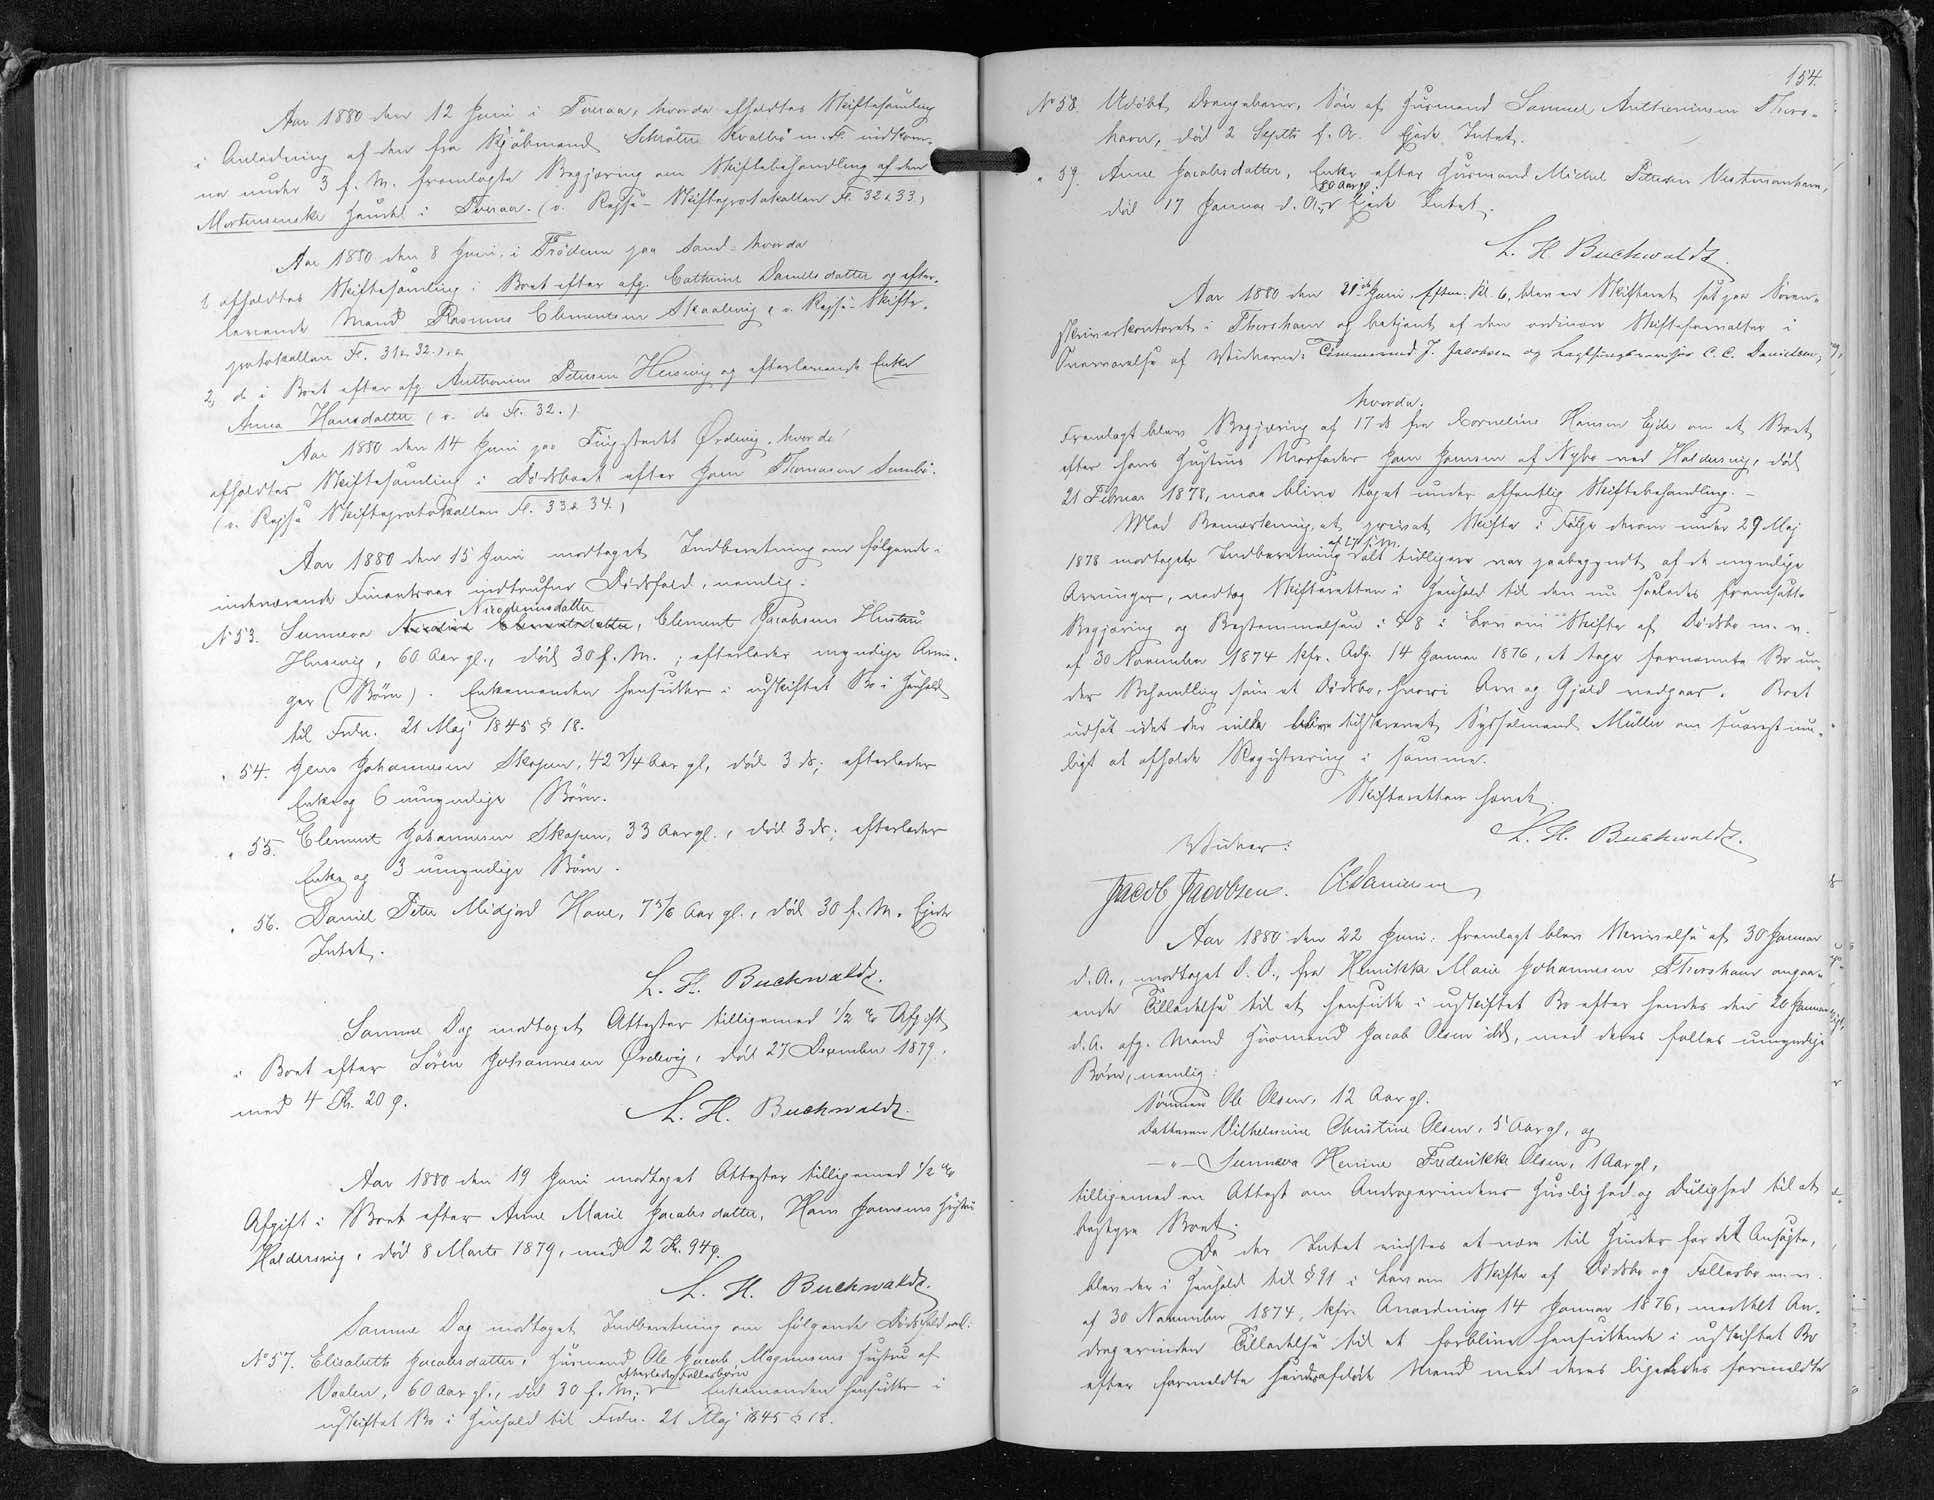 Aar 1880 den 12 Juni i Tveraa, hvorda afholdtes Skiftesamling
i Anledning af den fra Kjøbmand Schrøter Kvalbø m. fl. indkom-
ne under 3 f. M. fremlagte Begjæring om Skiftebehandling af den
Mortensenske Handel i Tveraa. (v. Rejse-Skifteprotokollen Fl. 32 & 33.)
Aar 1880 den 8 Juni, i Trödum paa Sand-hvorda
1, afholdtes Skiftesamling i Boet efter afg. Cathrine Danielsdatter og efter-
levende Mand Rasmus Clementsen Skaalevig, v. Rejse-Skifte-
protokollen Fl. 31 & 32.),
2, do i Boet efter afg. Anthonius Petersen Husevig og efterlevende Enke
Anna Hansdatter (v. do Fl. 32.)
Aar 1880 den 14 Juni paa Tingstedet Ørdevig, hvorda
afholdtes Skiftesamling i Dødsboet efter Joen Thomasen Sumbø.
(v. Rejse Skifteprotokollen Fl. 33 & 34.)
Aar 1880 den 15 Juni modtaget Indberetning om følgende i
indeværende Finantsaar indtrufne Dødsfald, nemlig:
Nicodemusdatter
No 53. Sunneva Clementsdatter, Clement Jacobsens Hustru
Husevig, 60 Aar gl., død 30 f. M.; efterlader myndige Arvin-
ger (Børn). Enkemanden hensidder i uskiftet Bo i Henhold
til Frdn. 21 Maj 1845 § 18.
" 54. Jens Johannesen Skopen, 42 3/4 Aar gl., død 3 ds; efterlader
Enke og 6 umyndige Børn.
" 55. Clement Johannesen Skopen, 33 Aar gl., død 3 ds; efterlader
Enke og 3 umyndige Børn.
" 56. Daniel Peter Midjord Hove, 7 5/6 Aar gl., død 30 f. M. Ejede
Intet.
L. H. Buchwaldt.
Samme Dag modtaget Attester tilligemed 1/2 % Afgift
i Boet efter Søren Johannesen Ørdevig, død 27 December 1879,
med 4 Kr. 20 Ø.
L. H. Buchwaldt.
Aar 1880 den 19 Juni modtaget Attester tilligemed 1/2 %
Afgift i Boet efter Anne Marie Jacobsdatter, Hans Joensens Hustru
Haldersvig, død 8 Marts 1879, med 2 Kr. 94 Ø.
L. H. Buchwaldt.
Samme Dag modtaget Indberetning om følgende Dødsfald
No 57. Elisabeth Jacobsdatter, Huusmand Ole Jacob Magnussens Hustru af
efterlader Fællesbørn
Vaalen, 60 Aar gl., død 30 f. M.; Enkemanden hensidder i
uskiftet Bo i Henhold til Frdn. 21 Maj 1845 § 18.
154.
No 58. Udøbt Drengebarn, Søn af Husmand Samuel Anthoniussen Thors-
havn, død 2 Septbr f. A. Ejede Intet.
" 59. Anne Jacobsdatter, Enke efter Husmand Michel Petersen Vestmanhavn,
80 Aar gl.
død 17 Januar d. A., Ejede Intet.
L. H. Buchwaldt.
Aar 1880 den 21de Juni, Efterm. Kl. 6, blev en Skifteret sat paa Soren-
skriverkontoret i Thorshavn og betjent af den ordinære Skifteforvalter i
Overværelse af Vidnerne: Tømmermd. J. Jacobsen og Lagthingsrevisor C. C. Danielsen,
hvorda:
Fremlagt blev Begjæring af 17 ds fra Cornelius Hansen Ejde om at Boet
efter hans Hustrus Morfader Joen Joensen af Nybo ved Haldersvig, død
21 Februar 1878, maa blive taget under offentlig Skiftebehandling. -
Med Bemærkning, at privat Skifte i Følge derom under 29 Maj
af 27 s. M.
1878 modtagen Indberetning alt tidligere var paabegyndt af de myndige
Arvinger, vedtog Skifteretten i Henhold til den nu saaledes fremsatte
Begjæring og Bestemmelsen i § 8 i Lov om Skifte af Dødsbo m. v.
af 30 November 1874 kfr. Adg. 14 Januar 1876, at tage fornævnte Bo un-
der Behandling som et Dødsbo, hvori Arv og Gjæld vedgaas. Boet
udsat idet der vilde blive tilskrevet Sysselmand Müller om snarest mu-
ligt at afholde Registrering i samme.
Skifteretten hævet
L. H. Buchwaldt.
Vidner:
Jacob Jacobsen. C C Danielsen
Aar 1880 den 22 Juni: fremlagt blev Skrivelse af 30 Januar
d. A., modtaget D. D., fra Henrikka Marie Johannesen Thorshavn angaa-
ende Tilladelse til at hensidde i uskiftet Bo efter hendes den 20 Januar
d. A. afg. Mand Husmand Jacob Olsen ibd., med deres fælles umyndige
Børn, nemlig:
Sønnen Ole Olsen, 12 Aar gl.
Datteren Vilhelmine Christine Olsen, 5 Aar gl, og
- " - Sunneva Henine Frederikke Olsen, 1 Aar gl,
tilligemed en Attest om Andragerindens Huslighed og Dulighed til at
bestyre Boet.
Da der Intet vidstes at være til Hinder for det Ansøgte,
blev der i Henhold til § 91 i Lov om Skifte af Dødsbo og Fællesbo m. v.
af 30 November 1874, kfr. Anordning 14 Januar 1876, meddelt An-
dragerinden Tilladelse til at forblive hensiddende i uskiftet Bo
efter formeldte hendes afdøde Mand med deres ligeledes formeldte